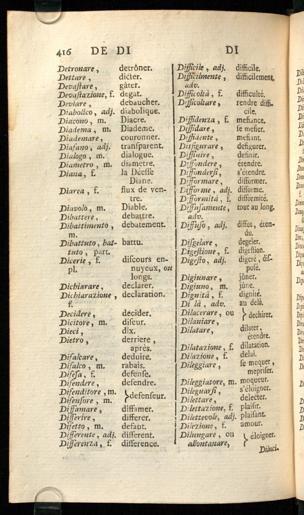 416 DE DI DI
Detronare, detrôner.
Dettare, dicter.
Devastare, gâter.
Devastazione, f. degat.
Deviare, debaucher.
Diabolico, adj. diabolique.
Diacono, m. Diacre.
Diadema, m. Diademe.
Diademare, couronner.
Diafano, adj. transparent.
Dialogo, m. dialogue.
Diametro, m. diametre.
Diana, f. la Déesse
Diane.
Diarea, f. flux de ven-
tre.
Diavolo, m. Diable.
Dibattere, debattre.
Dibattimento, debatement.
m.
Dibattuto, bat- battu.
tuto, part.
Dicerie, f. discours en-
pl. nuyeux, ou
longs.
Dichiarare, declarer.
Dichiarazione, declaration.
f.
Decidere, decider.
Dicitore, m. diseur.
Dieci, dix.
Dietro, derriere,
après.
Difalcare, deduire.
Difalco, m. rabais.
Difesa, f. defense.
Difendere, defendre.
Difenditore, m. defenseur.
Difensore, m.
Diffamare, diffamer.
Differire, differer.
Difetto, m. defaut.
Differente, adj. different.
Differenza, f. difference.
Difficile, adj. difficile.
Difficilmente, difficilement.
adv.
Difficoltà, f. difficulté.
Difficoltare, rendre diffi-
cile.
Diffidenza, f. mefiance.
Diffidare, se mefier.
Diffidente, mefiant.
Disfigurare, defigurer.
Diffinire, definir.
Diffondere, étendre.
Diffondersi, s'étendre.
Difformare, difformer.
Difforme, adj. difforme.
Difformità, f. difformité.
Diffusamente, tout au long.
adv.
Diffuso, adj. diffus, éten-
du.
Disgelare, degeler.
Digestione, f. digestion.
Digesto, adj. digeré, dis-
posé.
Digiunare, jûner.
Digiuno, m. jûne.
Dignità, f. dignité.
Di là, adv. au delà.
Dilacerare, ou déchirer.
Dilaniare,
Dilatare, dilater,
étendre.
Dilatazione, f. dilatation.
Dilazione, f. delai.
Dileggiare, se moquer,
mepriser.
Dileggiatore, m. moqueur.
Dileguarsi, s'éloigner.
Dilettare, delecter.
Dilettazione, f. plaisir.
Dilettevole, adj. plaisant.
Dilezione, f. amour.
Dilungare, ou éloigner.
allontanare,